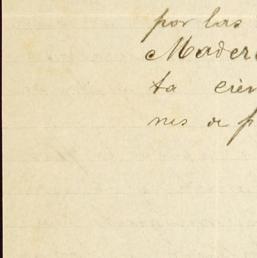 por las
Mader
ta cien
nes de f